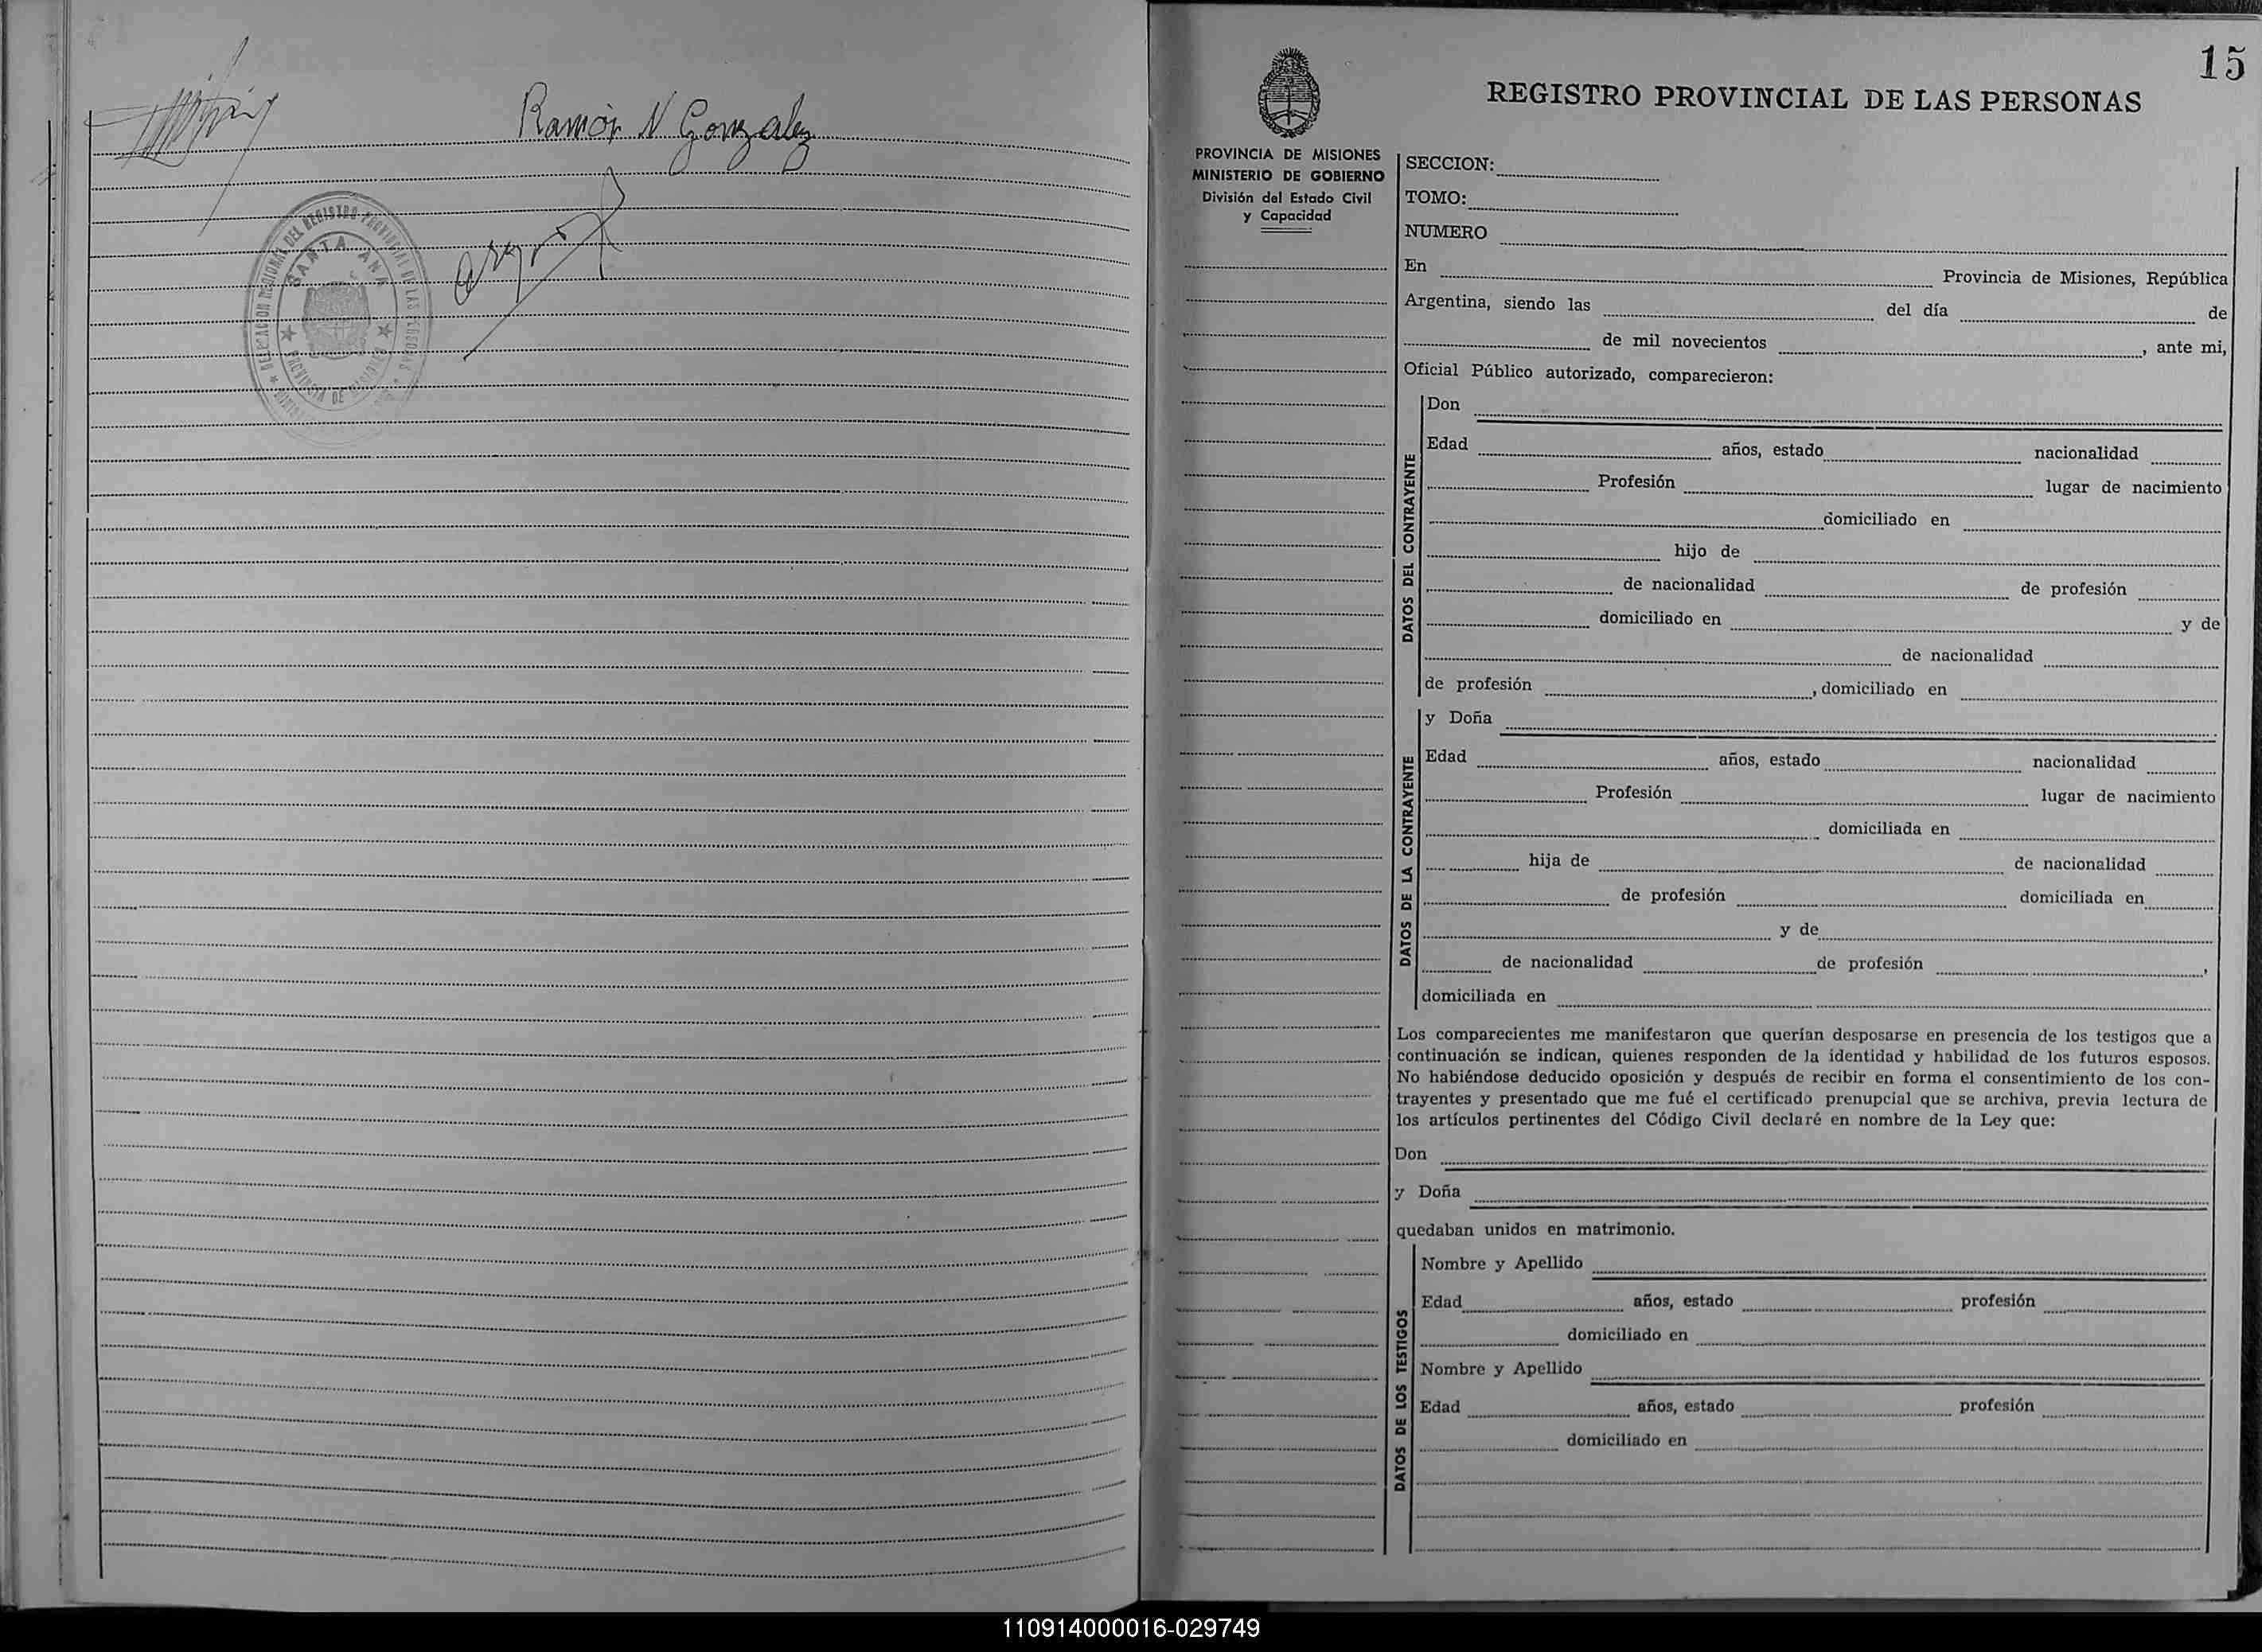 Ramón N Gonzalez
DELEGACION REGIONAL DEL REGISTRO PROVINCIAL DE LAS PERSONAS
SANTA ANA
PROVINCIA DE MISIONES
15
REGISTRO PROVINCIAL DE LAS PERSONAS
PROVINCIA DE MISIONES
MINISTERIO DE GOBIERNO
División del Estado Civil
y Capacidad
SECCION:
TOMO:
NUMERO
En Provincia de Misiones, República
Argentina, siendo las del día de
de mil novecientos , ante mi,
Oficial Público autorizado, comparecieron:
DATOS DEL CONTRAYENTE
Don
Edad años, estado nacionalidad
Profesión lugar de nacimiento
domiciliado en
hijo de
de nacionalidad de profesión
domiciliado en y de
de nacionalidad
de profesión , domiciliado en
DATOS DE LA CONTRAYENTE
y Doña
Edad años, estado nacionalidad
Profesión lugar de nacimiento
domiciliada en
hija de de nacionalidad
de profesión domiciliada en
y de
de nacionalidad de profesión ,
domiciliada en
Los comparecientes me manifestaron que querían desposarse en presencia de los testigos que a
continuación se indican, quienes responden de la identidad y habilidad de los futuros esposos.
No habiéndose deducido oposición y después de recibir en forma el consentimiento de los con-
trayentes y presentado que me fué el certificado prenupcial que se archiva, previa lectura de
los artículos pertinentes del Código Civil declaré en nombre de la Ley que:
Don
y Doña
quedaban unidos en matrimonio.
DATOS DE LOS TESTIGOS
Nombre y Apellido
Edad años, estado profesión
domiciliado en
Nombre y Apellido
Edad años, estado profesión
domiciliado en
110914000016-029749